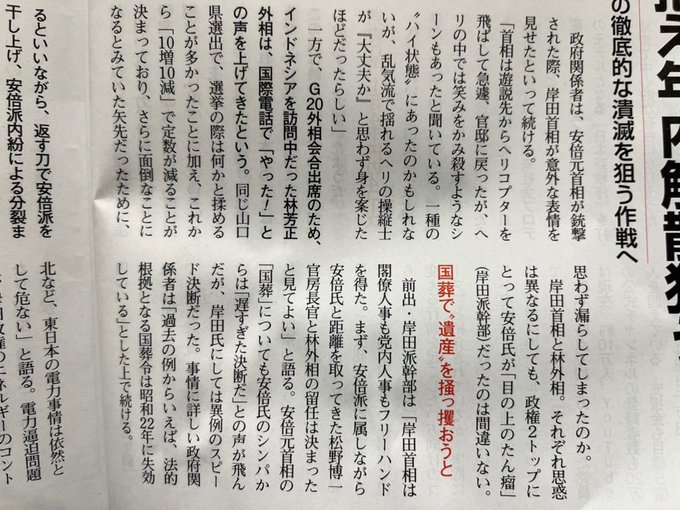 え年内解散狙
の徹底的な潰滅を狙う作戦へ
政府関係者は、安倍元首相が銃撃
された際、岸田首相が意外な表情を
見せたといって続ける。
「首相は遊説先からヘリコプターを
飛ばして急遽、官邸に戻ったが、ヘ
リの中では笑みをかみ殺すようなシ
ーンもあったと聞いている。一種の
〝ハイ状態〟にあったのかもしれな
いが、乱気流で揺れるヘリの操縦士
が『大丈夫か』と思わず身を案じた
ほどだったらしい」
一方で、G20外相会合出席のため、
インドネシアを訪問中だった林芳正
外相は、国際電話で「やった!」と
の声を上げてきたという。同じ山口
県選出で、選挙の際は何かと揉める
ことが多かったことに加え、これか
ら「10増10減」で定数が減ることが
決まっており、さらに面倒なことに
なるとみていた矢先だったために、
思わず漏らしてしまったのか。
岸田首相と林外相。それぞれ思惑
は異なるにしても、政権2トップに
とって安倍氏が「目の上のたん瘤」
(岸田派幹部)だったのは間違いない。
国葬で〝遺産〟を掻っ攫おうと
前出・岸田派幹部は「岸田首相は
閣僚人事も党内人事もフリーハンド
を得た。まず、安倍派に属しながら
安倍氏と距離を取ってきた松野博一
官房長官と林外相の留任は決まった
と見てよい」と語る。安倍元首相の
「国葬」についても安倍氏のシンパか
らは「遅すぎた決断だ」との声が飛ん
だが、岸田氏にしては異例のスピー
ド決断だった。事情に詳しい政府関
係者は「過去の例からいえば、法的
根拠となる国葬令は昭和22年に失効
している」とした上で続ける。
るといいながら、返す刀で安倍派を
干し上げ、安倍派内紛による分裂ま
北など、東日本の電力事情は依然と
して危ない」と語る。電力逼迫問題
政権のエネルギーのコント